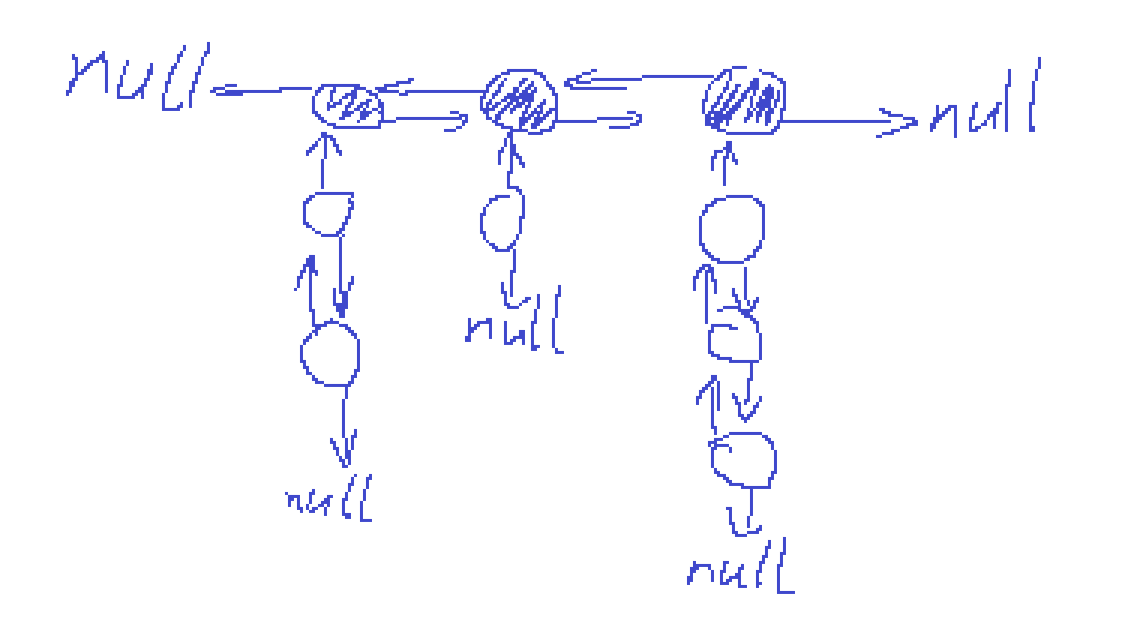 null null
null
null
null